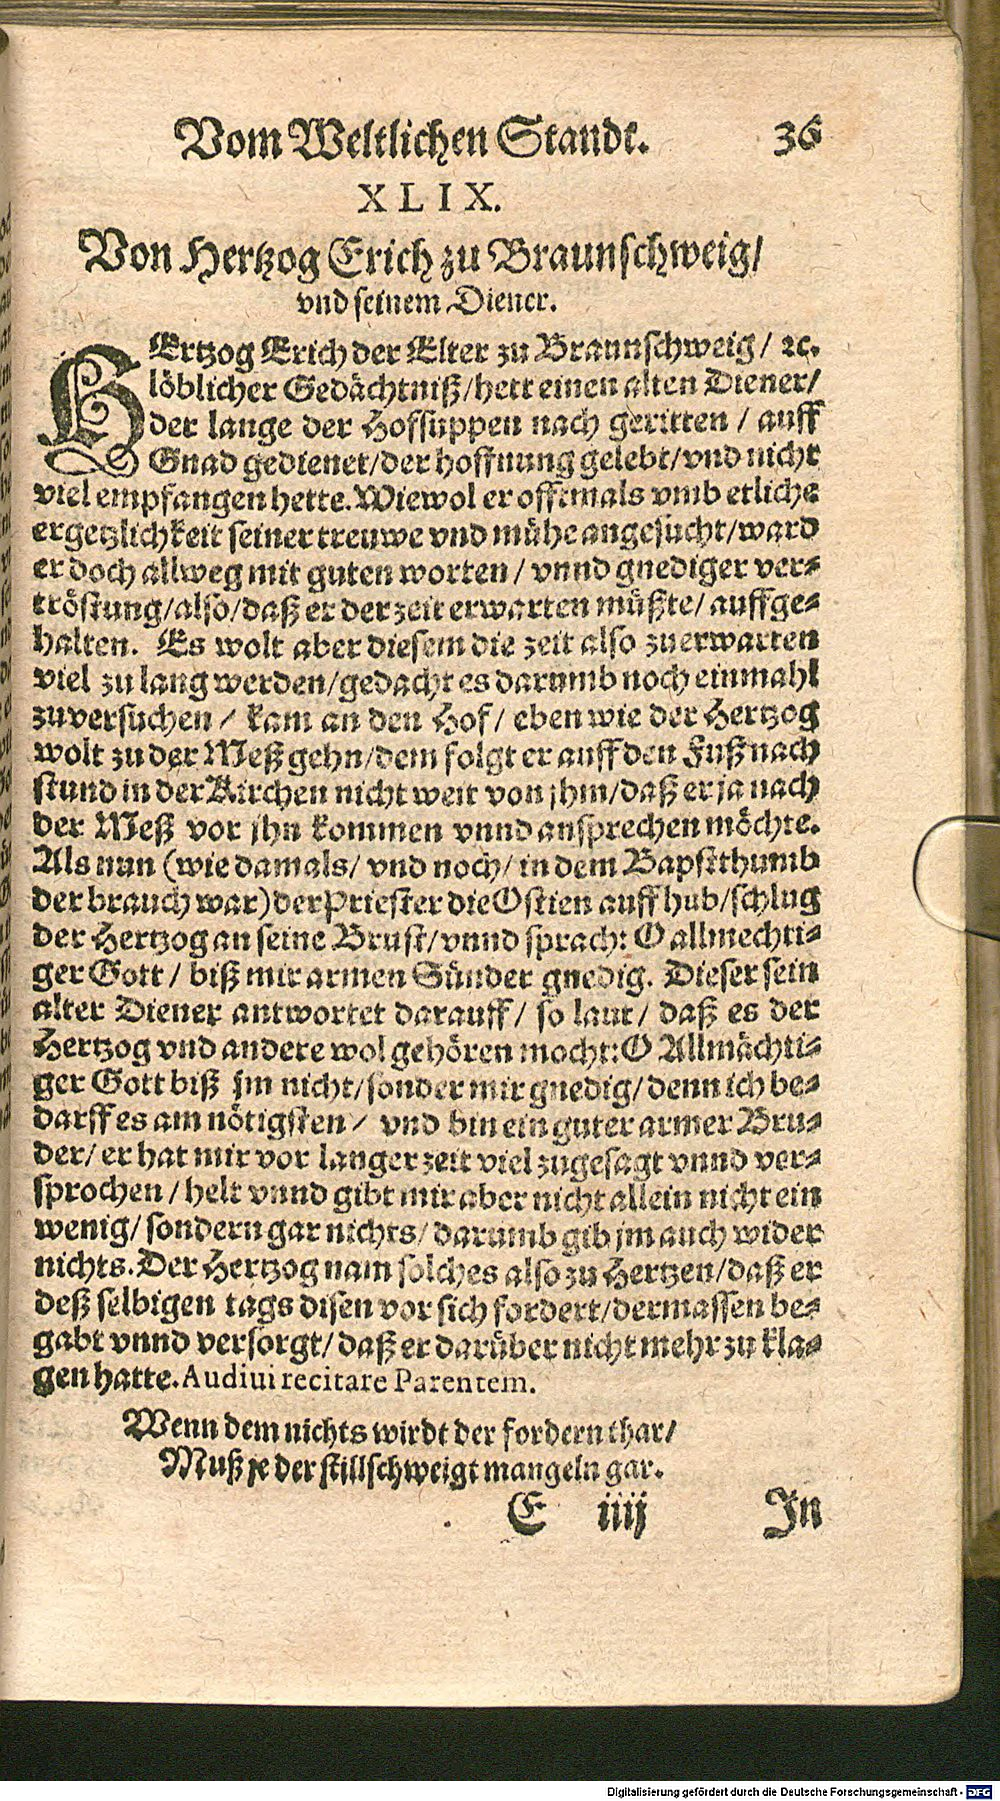 Vom Weltlichen Standt. 36
XLIX.
Von Hertzog Erich zu Braunschweig/
vnd seinem Diener.
HErtzog Erich der Elter zu Braunschweig/ ꝛc.
löblicher Gedächtniß/hett einen alten Diener/
der lange der Hofsuppen nach geritten / auff
Gnad gedienet/der hoffnung gelebt/vnd nicht
viel empfangen hette. Wiewol er offtmals vmb etliche
ergetzlichkeit seiner treuwe vnd mühe angesucht/ward
er doch allweg mit guten worten / vnnd gnediger ver-
tröstung/also/daß er der zeit erwarten müßte/ auffge-
halten. Es wolt aber diesem die zeit also zuerwarten
viel zu lang werden/gedacht es darumb noch einmahl
zuversuchen / kam an den Hof/ eben wie der Hertzog
wolt zu der Meß gehn/dem folgt er auff den Fuß nach
stund in der Kirchen nicht weit von jhm/daß er ja nach
der Meß vor jhn kommen vnnd ansprechen möchte.
Als nun (wie damals/ vnd noch/ in dem Bapstthumb
der brauch war) der Priester die Ostien auff hub/schlug
der Hertzog an seine Brust/vnnd sprach: O allmechti-
ger Gott/ biß mir armen Sünder gnedig. Dieser sein
alter Diener antwortet darauff/ so laut/ daß es der
Hertzog vnd andere wol gehören mocht: O Allmächti-
ger Gott biß jm nicht/sonder mir gnedig/denn ich be-
darff es am nötigsten / vnd bin ein guter armer Bru-
der/ er hat mir vor langer zeit viel zugesagt vnnd ver-
sprochen / helt vnnd gibt mir aber nicht allein nicht ein
wenig/ sondern gar nichts/ darumb gib jm auch wider
nichts. Der Hertzog nam solches also zu Hertzen/daß er
deß selbigen tags disen vor sich fordert/dermassen be-
gabt vnnd versorgt/daß er darüber nicht mehr zu kla-
gen hatte. Audiui recitare Parentem.
Wenn dem nichts wirdt der fordern thar/
Muß je der stillschweigt mangeln gar.
E iiij In
Digitalisierung gefördert durch die Deutsche Forschungsgemeinschaft - DFG